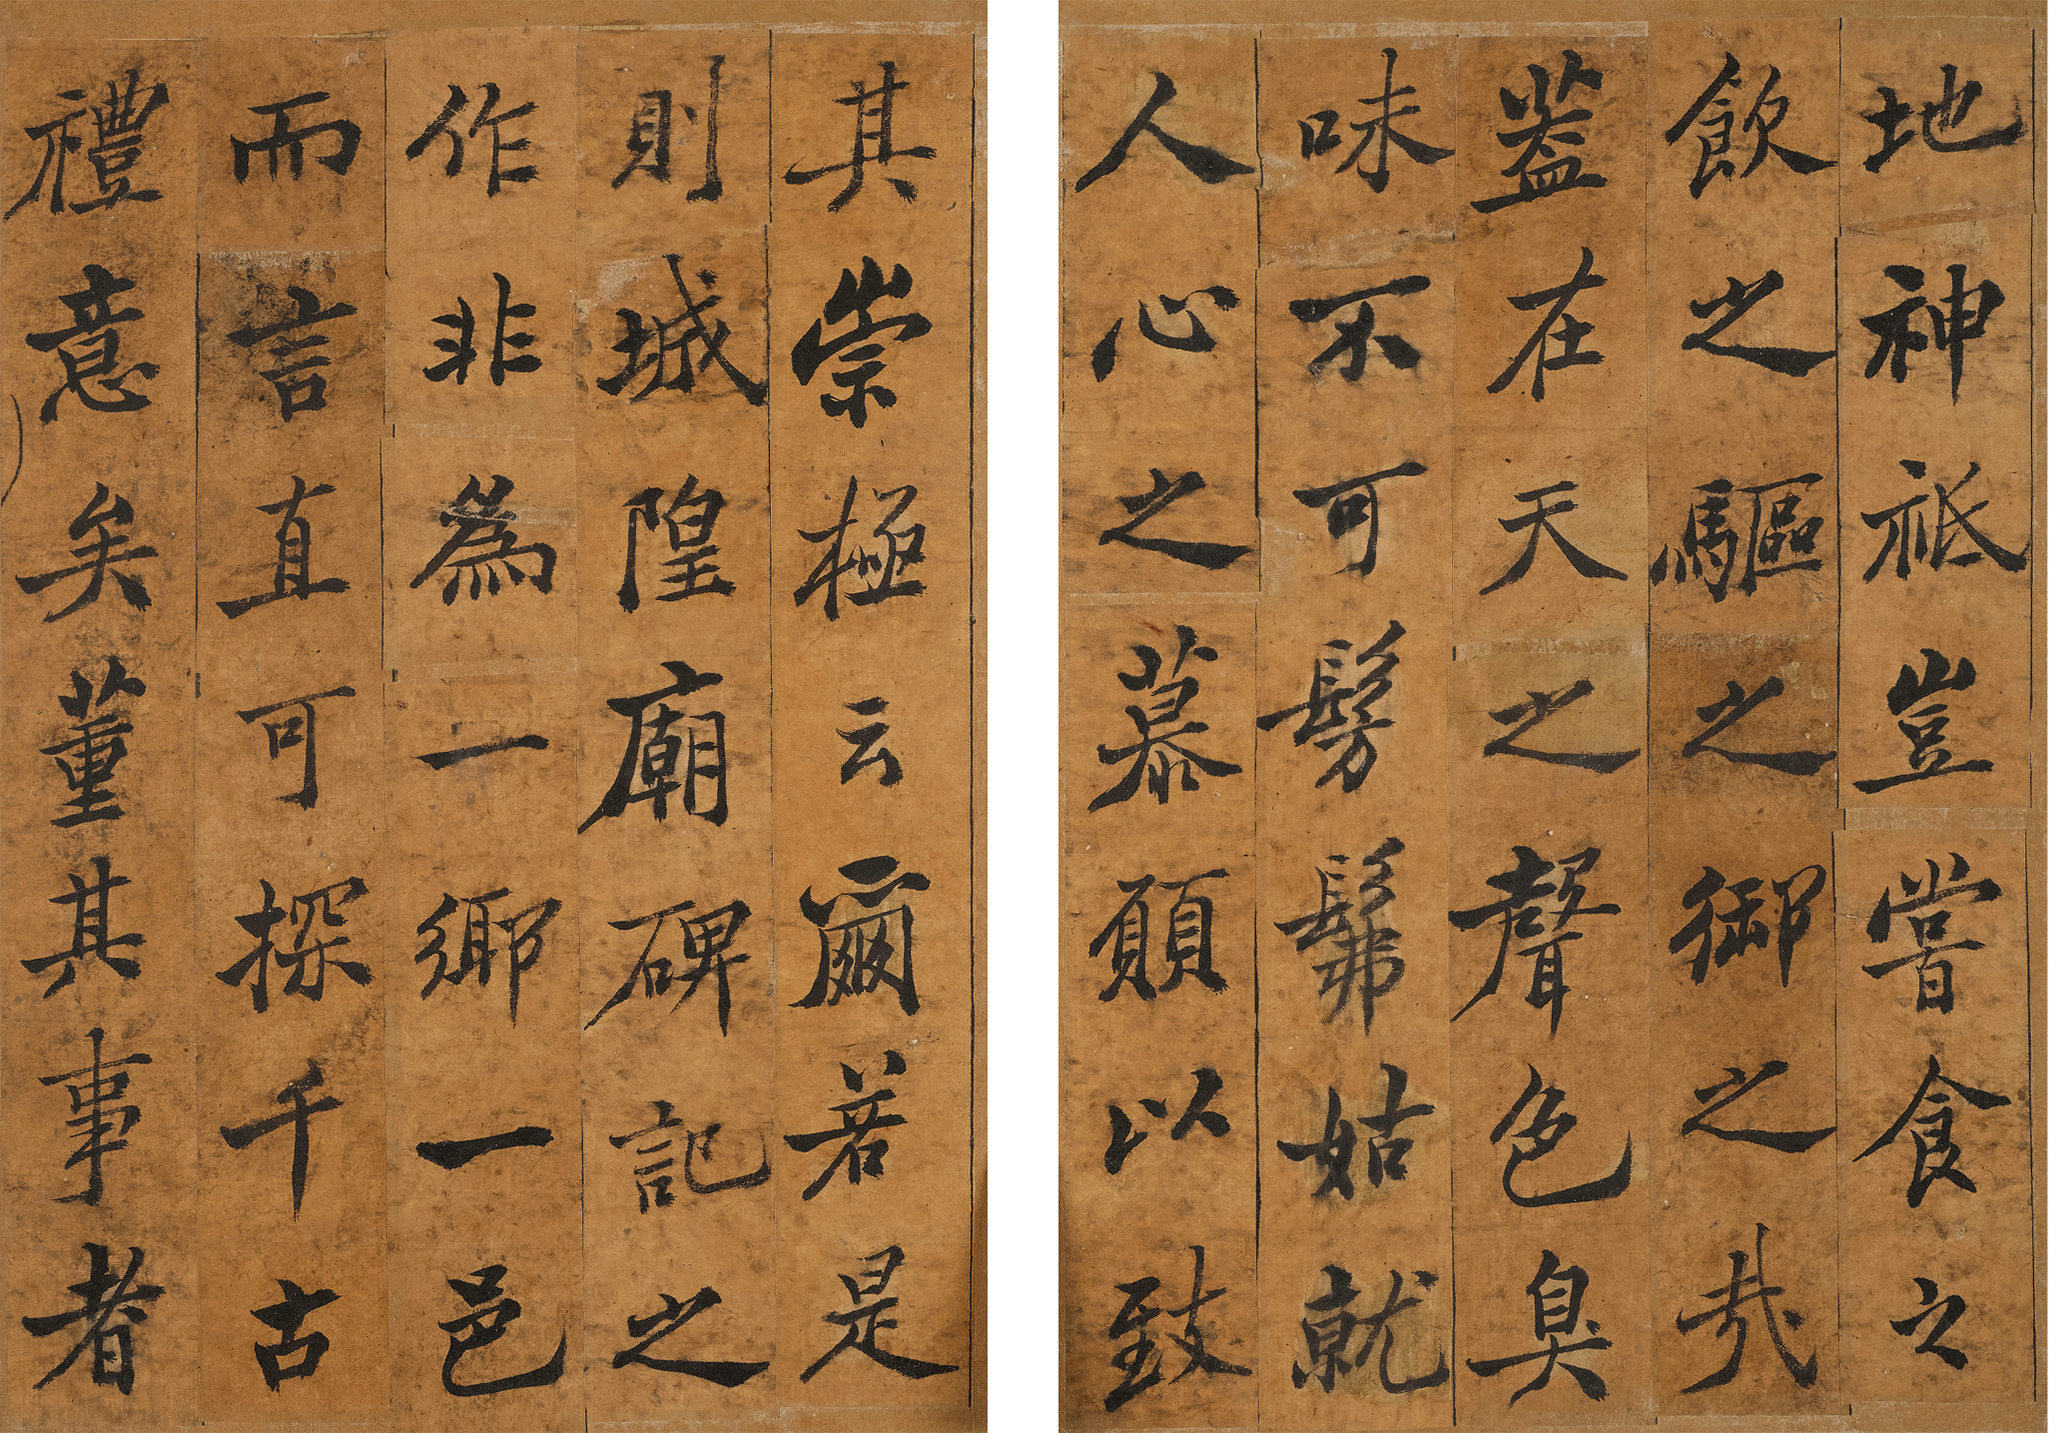 地神祇豈嘗食之
飲之驅之御之哉
蓋在天之聲色臭
味不可髣髴姑就
人心之慕願以致
其崇極云爾若是
則城隍廟碑記之
作非為一鄉一邑
而言直可探千古
禮意矣董其事者